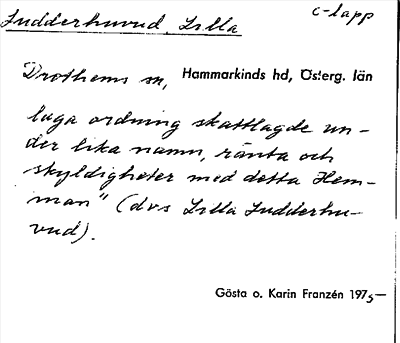 Ludderhuvud, Lilla
c-lapp
Drothems sn, Hammarkinds hd, Österg. län
laga ordning skattlagde un-
der lika namn, ränta och
skyldigheter med detta Hem-
man" (dvs Lilla Ludderhu-
vud).
Gösta o. Karin Franzén 1975-